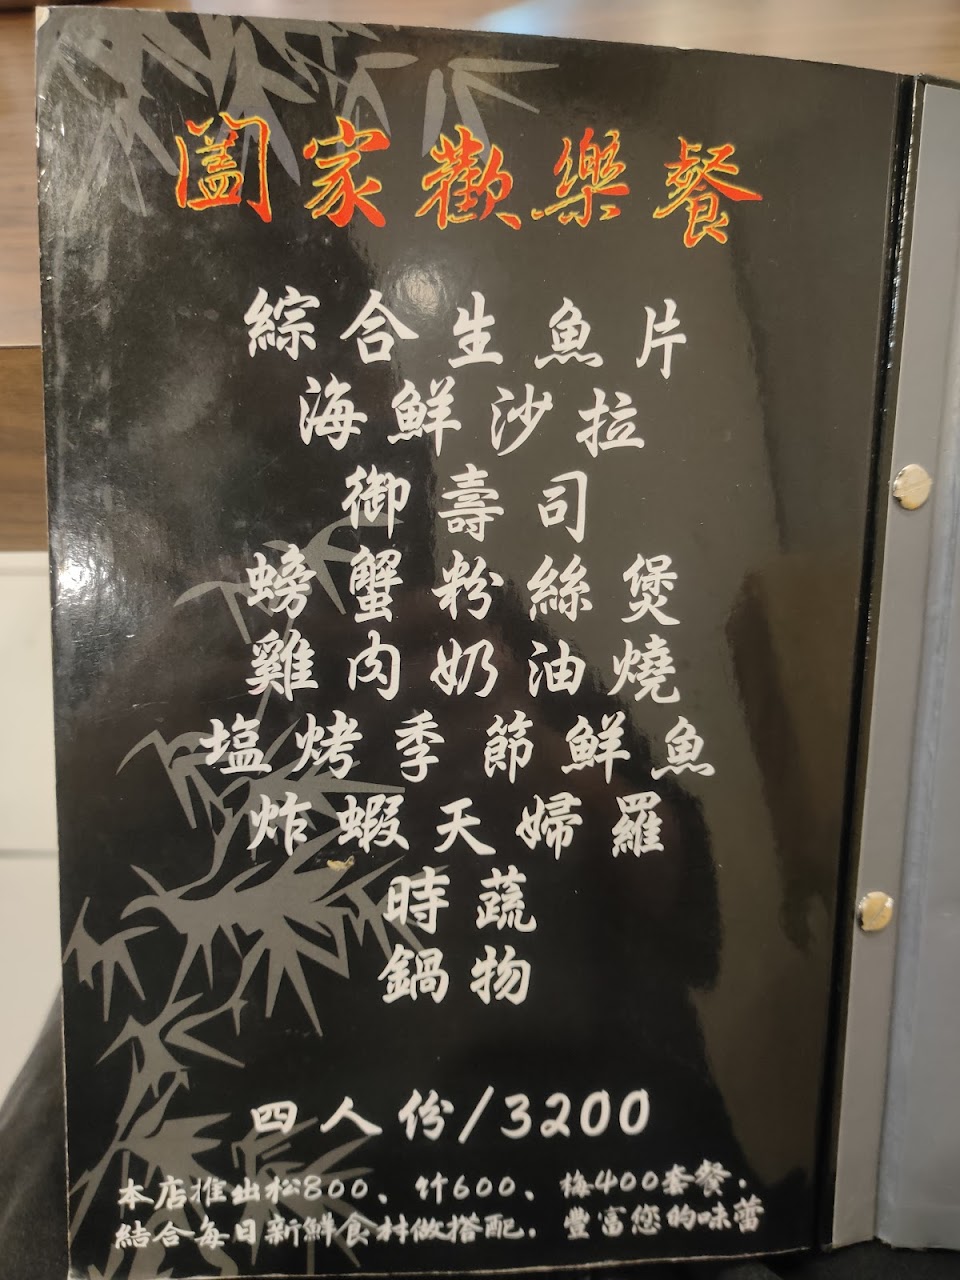 闔家歡樂餐
綜合生魚片
海鮮沙拉
御壽司
螃蟹粉絲煲
雞肉奶油燒
塩烤季節鮮魚
炸蝦天婦羅
時蔬
鍋物
四人份/3200
本店推出松800、竹600、梅400套餐.
結合每日新鮮食材做搭配.豐富您的味蕾